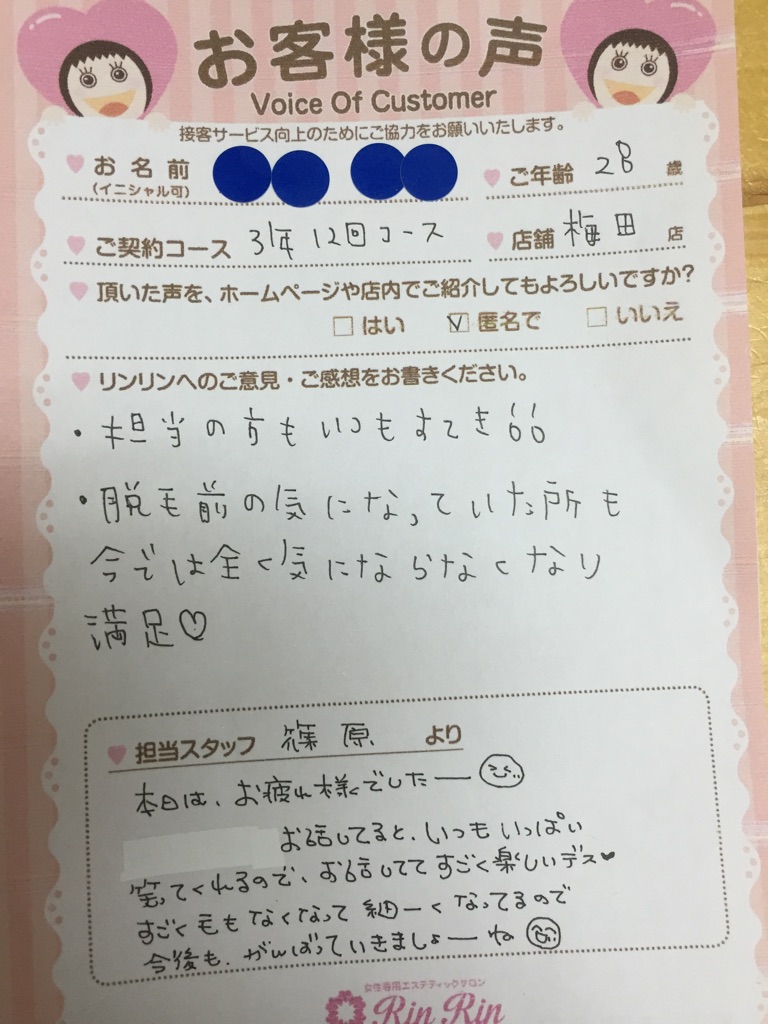 お客様の声
Voice Of Customer
接客サービス向上のためにご協力をお願いいたします。
お名前
(イニシャル可)
ご年齢 28 歳
ご契約コース 3年12回コース
店舗 梅田 店
頂いた声を、ホームページや店内でご紹介してもよろしいですか?
□はい ☑匿名で □いいえ
リンリンへのご意見・ご感想をお書きください。
・担当の方もいつもすてき
・脱毛前の気になっていた所も
今では全く気にならなくなり
満足♡
担当スタッフ 篠原 より
本日は、お疲れ様でしたー
お話してると、いつもいっぱい
笑ってくれるので、お話しててすごく楽しいデス♥
すごく毛もなくなって細ーくなってるので
今後も、がんばっていきましょーね
女性専用エステティックサロン
RinRin